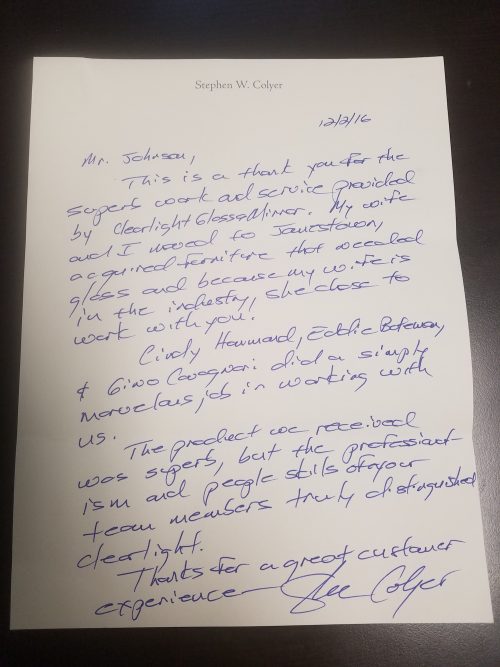 Stephen W. Colyer
12/2/16
Mr. Johnson,
This is a thank you for the
superb work and service provided
by Clearlight Glass & Mirror. My wife
and I moved to Jamestown,
acquired furniture that needed
glass and because my wife is
in the industry, she chose to
work with you.
Cindy Hammond, Eddie Bateman,
& Gino Cavagnari did a simply
marvelous job in working with
us.
The product we received
was superb, but the professional-
ism and people skills of your
team members truly distinguished
Clearlight.
Thanks for a great customer
experience— Steve Colyer